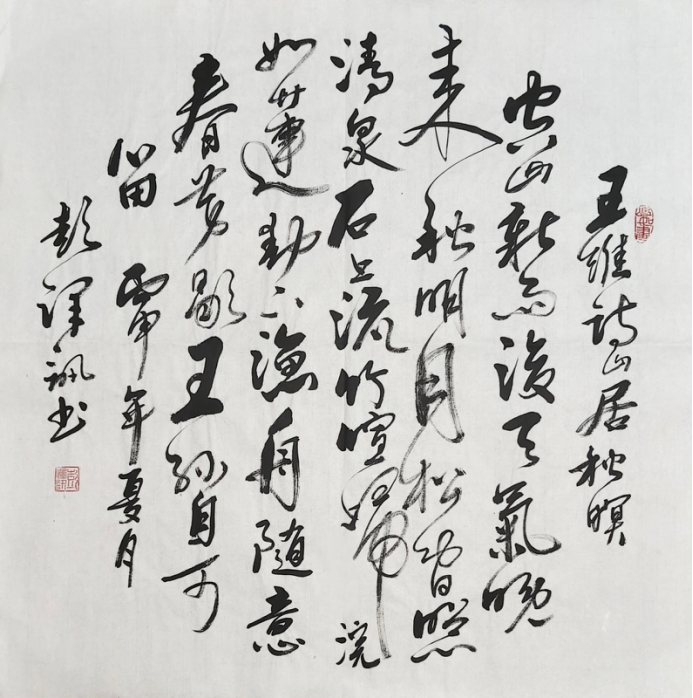 王維诗山居秋暝
空山新雨後天氣晚
来秋明月松间照
清泉石上流竹喧歸浣
如蓮動下漁舟随意
春芳歇王孙自可
留丙申年夏月
彭书